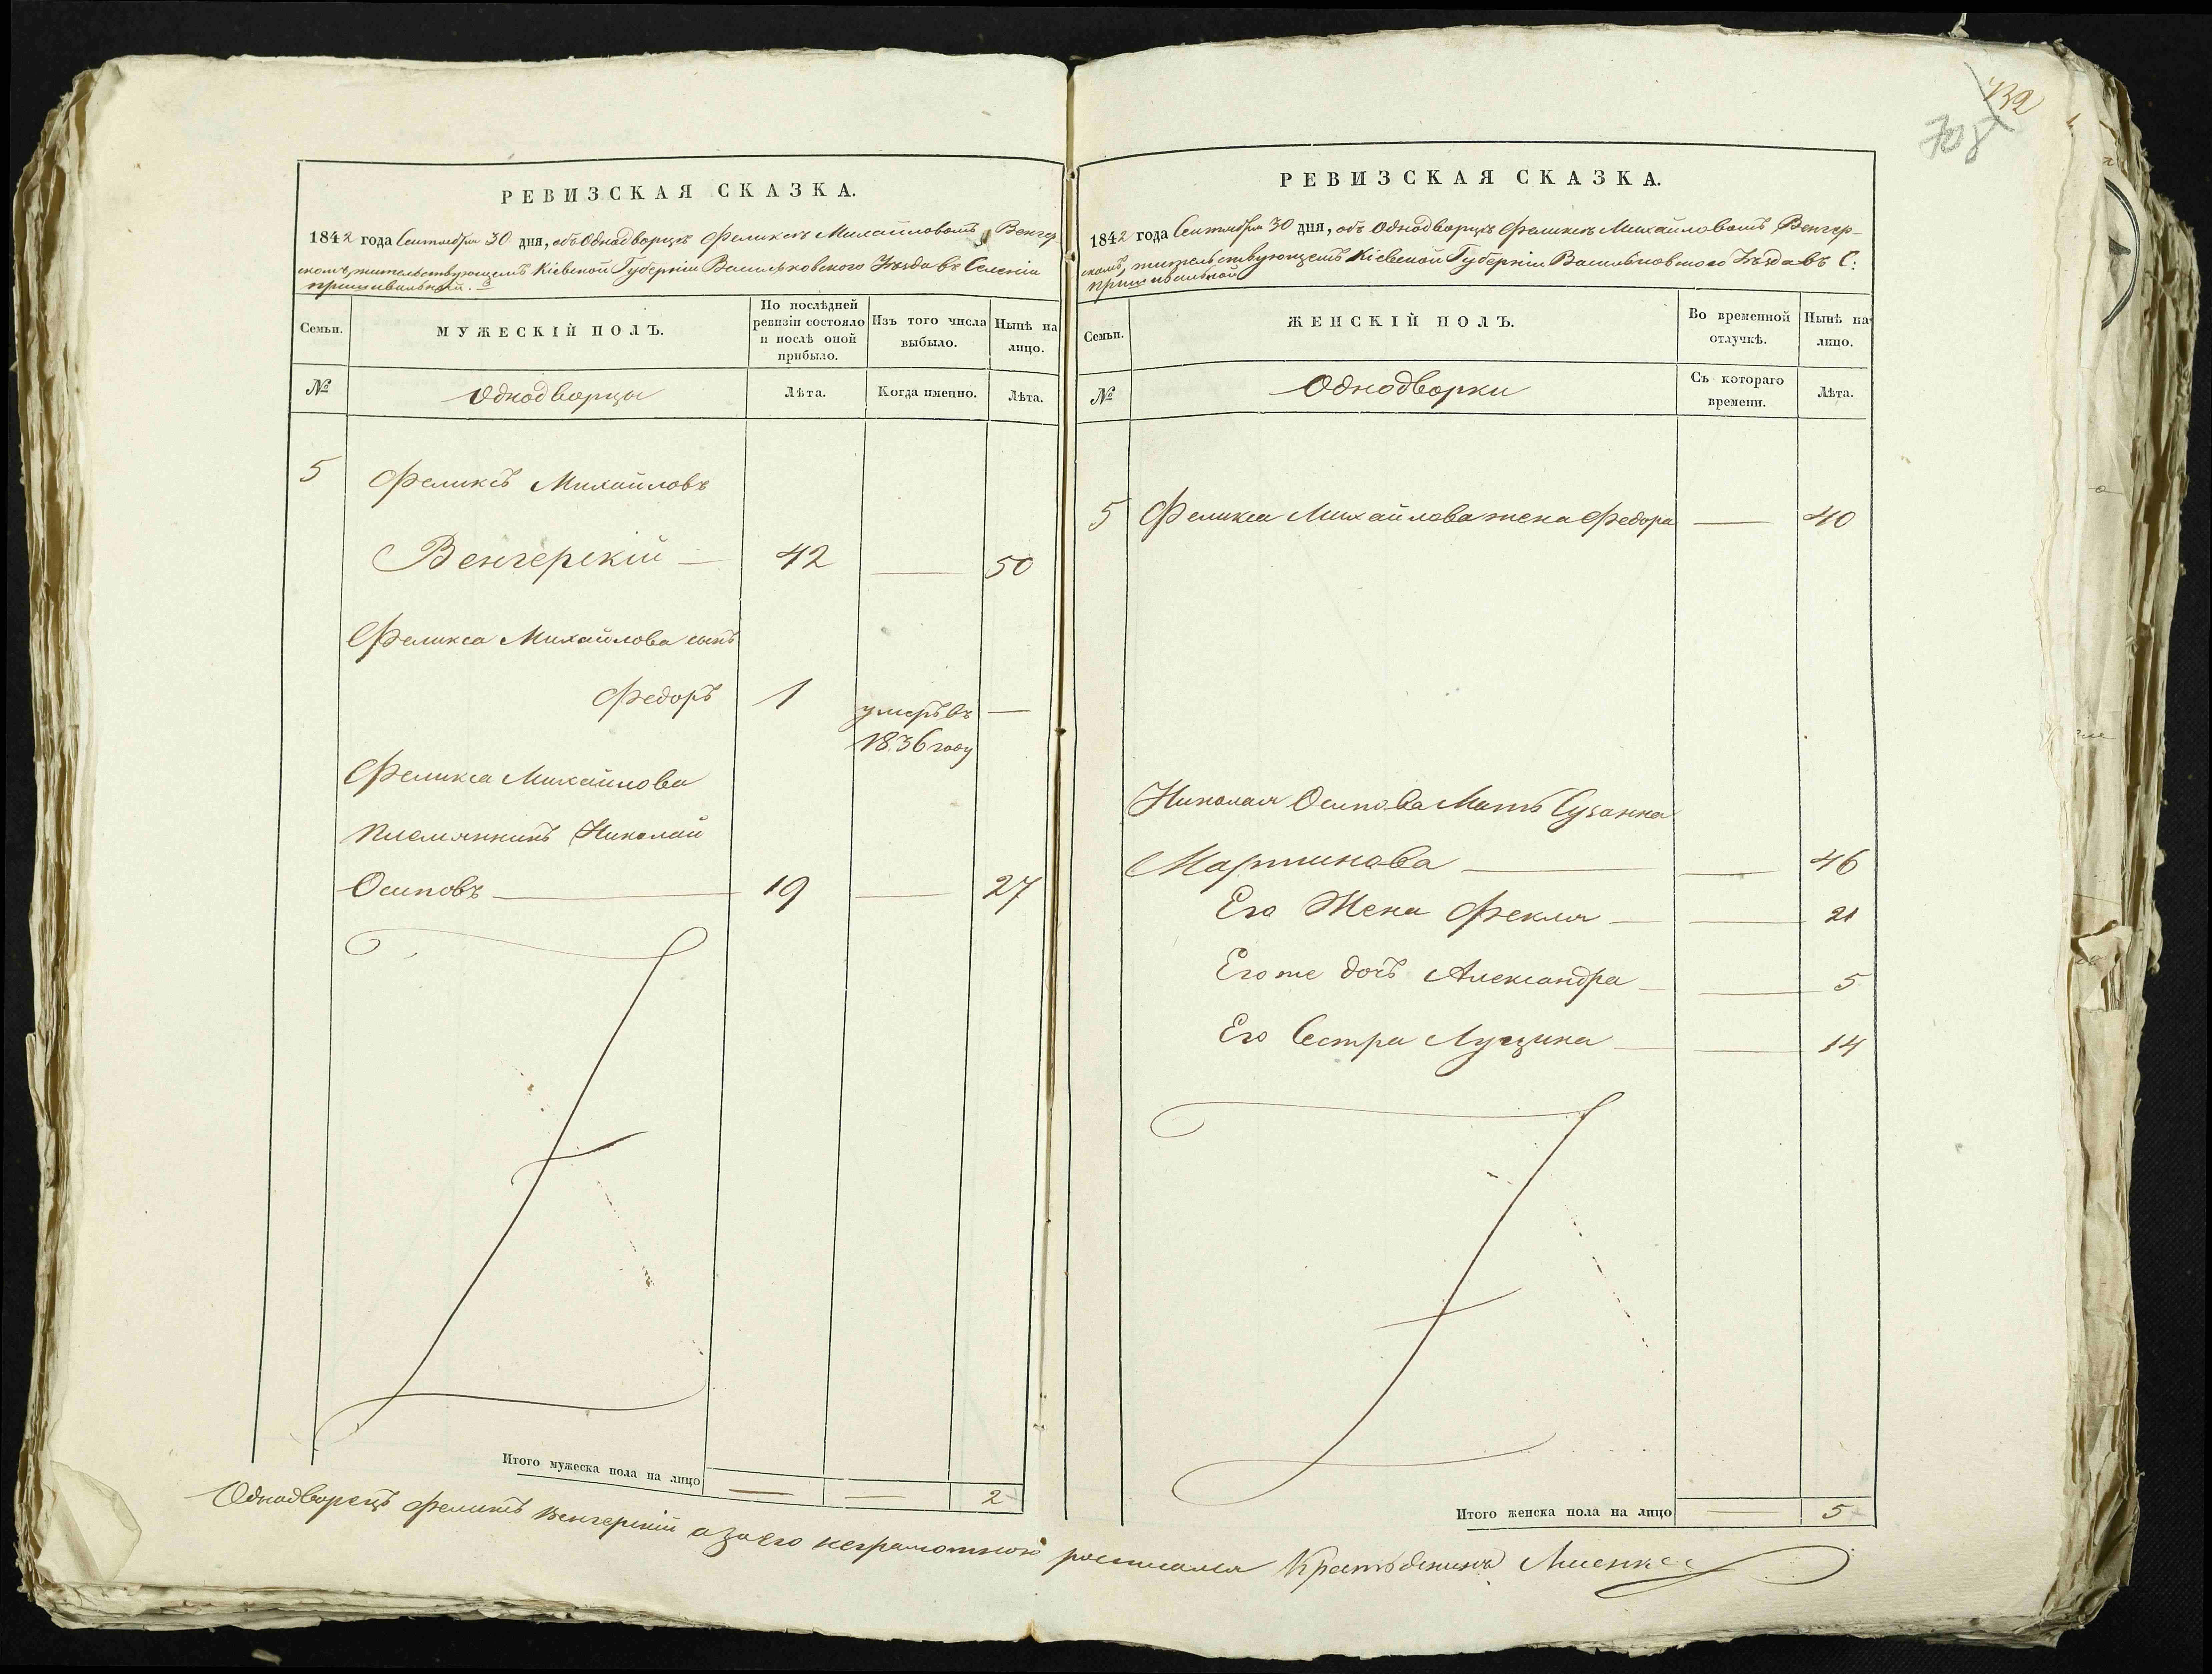 132
708
РЕВИЗСКАЯ СКАЗКА.
1842 года Сентября 30 дня, объ Однодворцѣ Феликсѣ Михайловомъ Венгер
скомъ, жительствующемъ Кіевской Губерніи Васильковского Уѣзда въ Селеніи
Семьи.
МУЖЕСКІЙ ПОЛЪ.
По послѣдней ревизіи состояло и послѣ оной прибыло.
Изъ того числа выбыло.
Нынѣ на лицо.
№
Однодворцы
Лѣта.
Когда именно.
Лѣта.
5 Феликсъ Михайловъ
Венгерскій — 42 — 50
Феликса Михайлова сынъ
Федоръ 1 умеръ въ —
1836 году
Феликса Михайлова
племянникъ Николай
Осиповъ — 19 — 27
Итого мужеска пола на лицо — — 2
РЕВИЗСКАЯ СКАЗКА.
1842 года Сентября 30 дня, объ Однодворцѣ Феликсѣ Михайловомъ Венгер-
скомъ, жительствующемъ Кіевской Губерніи Васильковского Уѣзда въ С:
Семьи.
ЖЕНСКІЙ ПОЛЪ.
Во временной отлучкѣ.
Нынѣ на лицо.
№
Однодворки
Съ котораго времени.
Лѣта.
5 Феликса Михайлова жена Федора — 40
Николая Осипова Мать Сузанна
Мартинова — — 46
Его Жена Фекля — — 21
Его же дочь Александра — — 5
Его Сестра Луцина — — 14
Итого женска пола на лицо — 5
Однодворецъ Феликсъ Венгерскій а за его неграмотного росписался